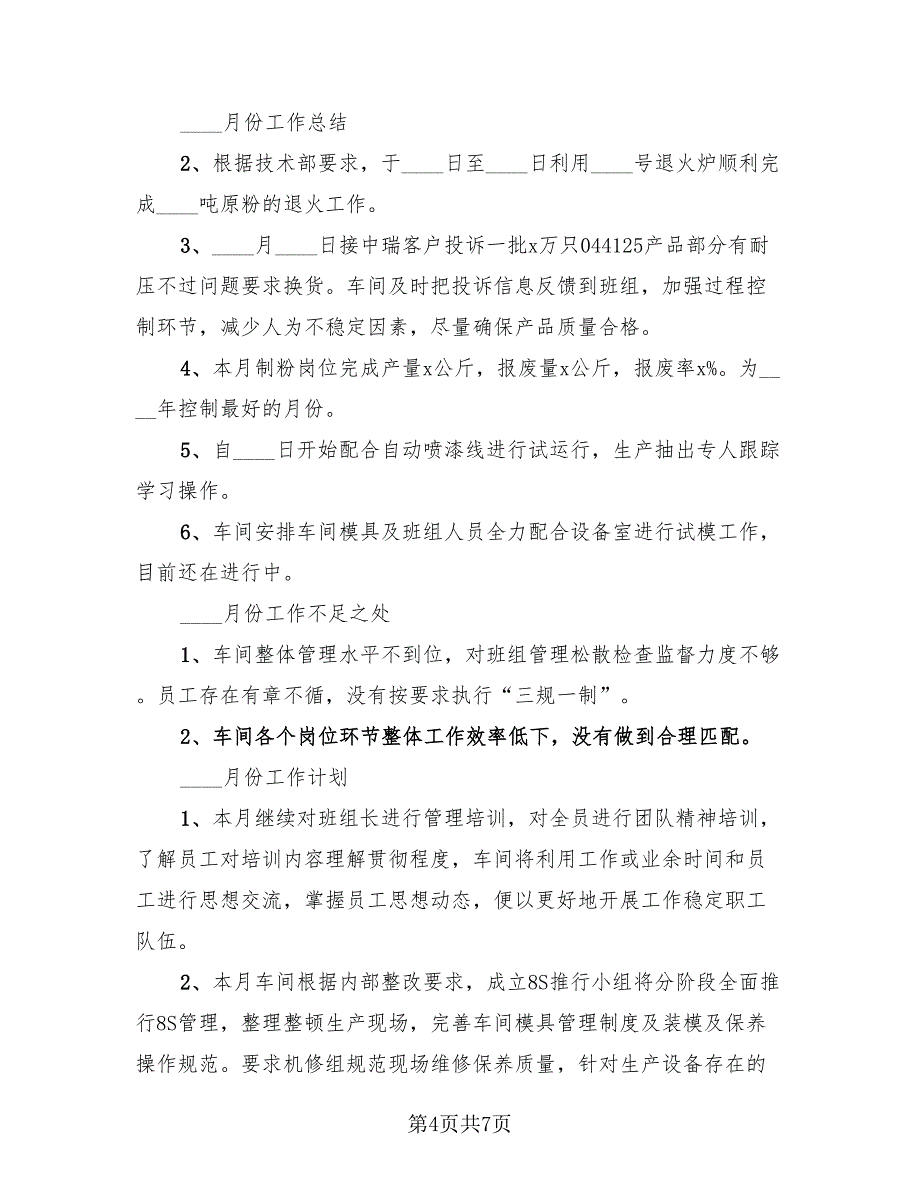 ____月份工作总结
2、根据技术部要求，于____日至____日利用____号退火炉顺利完
成____吨原粉的退火工作。
3、____月____日接中瑞客户投诉一批x万只044125产品部分有耐
压不过问题要求换货。车间及时把投诉信息反馈到班组，加强过程控
制环节，减少人为不稳定因素，尽量确保产品质量合格。
4、本月制粉岗位完成产量x公斤，报废量x公斤，报废率x%。为__
__年控制最好的月份。
5、自____日开始配合自动喷漆线进行试运行，生产抽出专人跟踪
学习操作。
6、车间安排车间模具及班组人员全力配合设备室进行试模工作，
目前还在进行中。
____月份工作不足之处
1、车间整体管理水平不到位，对班组管理松散检查监督力度不够
。员工存在有章不循，没有按要求执行“三规一制”。
2、车间各个岗位环节整体工作效率低下，没有做到合理匹配。
____月份工作计划
1、本月继续对班组长进行管理培训，对全员进行团队精神培训，
了解员工对培训内容理解贯彻程度，车间将利用工作或业余时间和员
工进行思想交流，掌握员工思想动态，便以更好地开展工作稳定职工
队伍。
2、本月车间根据内部整改要求，成立8S推行小组将分阶段全面推
行8S管理，整理整顿生产现场，完善车间模具管理制度及装模及保养
操作规范。要求机修组规范现场维修保养质量，针对生产设备存在的
第4页共7页